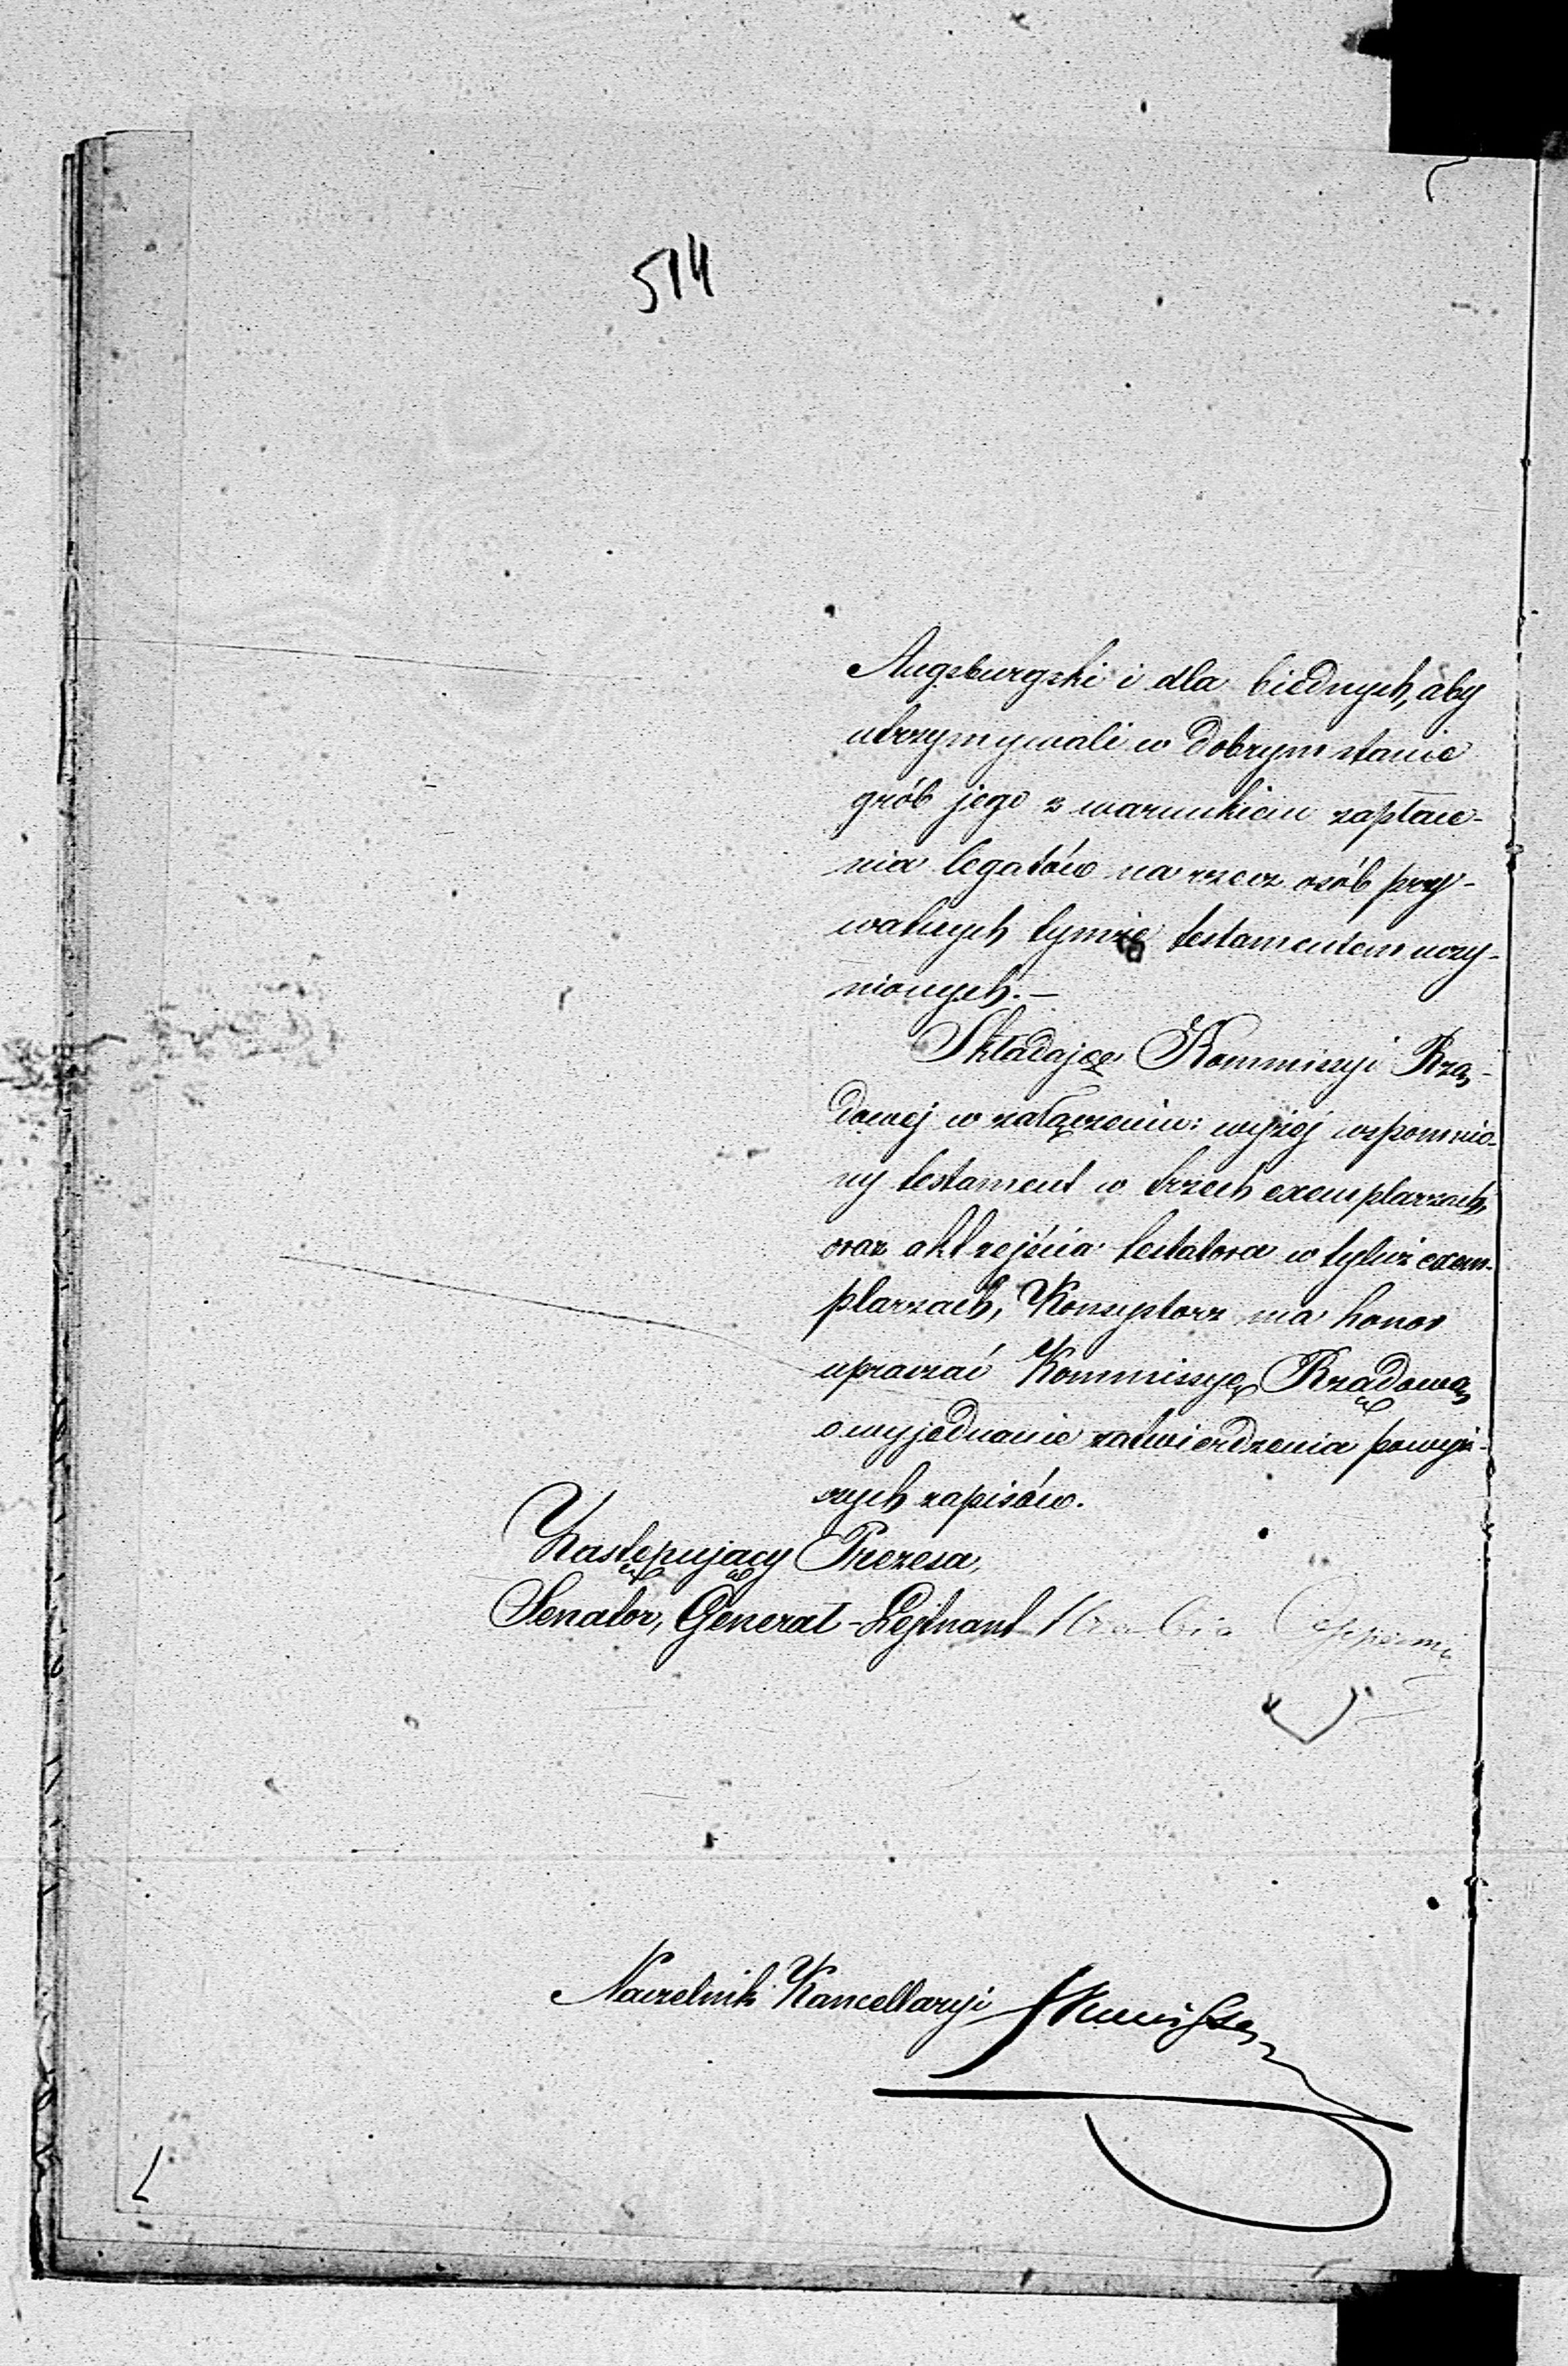 514
Augsburgski i dla biednych, aby
utrzymywali w dobrym stanie
grób jego z warunkiem zapłace-
nia legatów na rzecz osób pry-
watnych tymże testamentem uczy-
nionych. —
Składając Kommissyi Rzą-
dowej w załączeniu: wyżej wspomnio-
ny testament w trzech exemplarzach,
oraz akt zejścia testatora w tyluż exem-
plarzach, Konsystorz ma honor
upraszać Kommissyę Rządową
o wyjednanie zatwierdzenia powyż-
szych zapisów.
Zastępujący Prezesa,
Senator, Generał-Lejtnant Hrabia
Naczelnik Kancellaryi